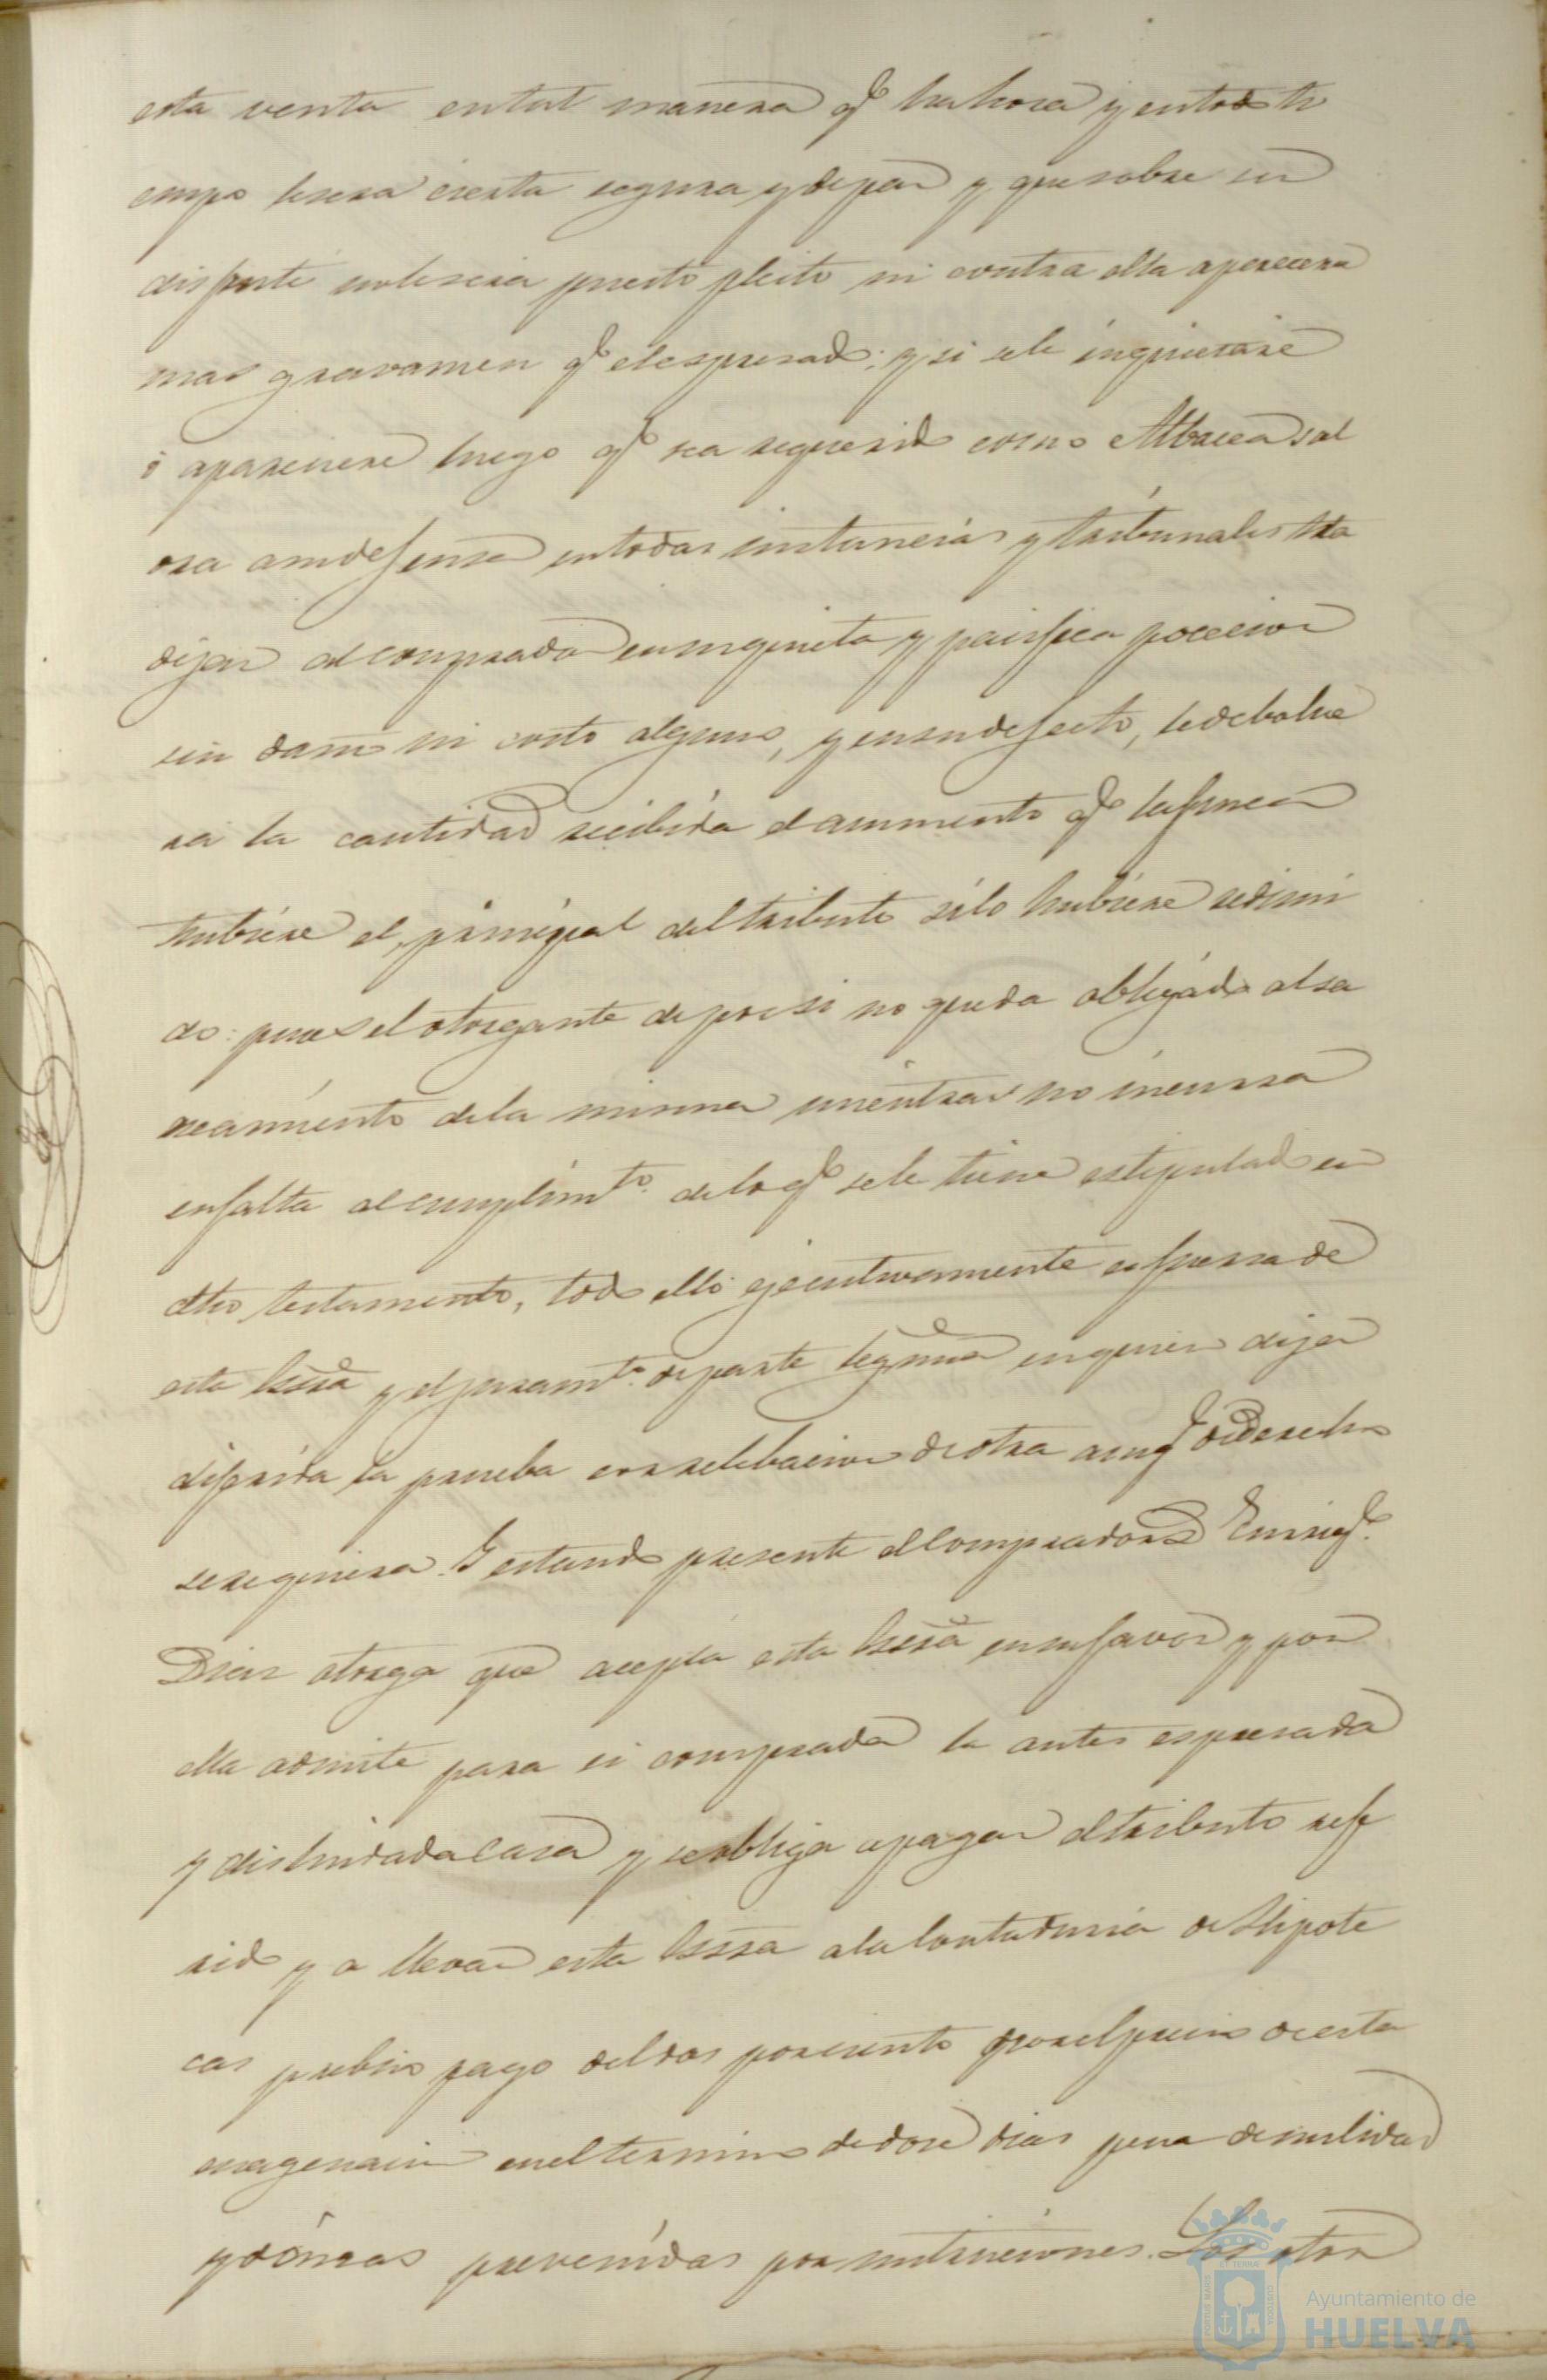 esta venta entat manera q.e hahora y entodo ti
empo lesera cierta segura y depaz y que sobre su
disfrute nolesera puesto pleito ni contra ella aparecera
mas gravamen q.e elespresado; y si sele inquietare
ó apareciere luego q.e sea requerido como Albacea sal
dra asudefensa entodas instancias y tribunales hta
dejar alcomprador ensuquieta y pacifica poceción
sin daño ni costo alguno, y ensudefecto, ledebolve
rá la cantidad recibida elaumento q.e lafinca
tubiere el principal deltributo silo hubiere redimi
do: pues el otorgante deporsi no queda obligado alsa
neamiento dela misma mientras no incurra
enfalta alcumplimto. delo q.e sele tiene estipulado en
dho testamento, todo ello ejecutivamente enfuerza de
esta Essra y eljuramto. departe legitima enquien deja
diferida la prueba conrelebacion deotra aunq.e dederecho
serequiera. Y estando presente elComprador D. Enriq.e
Diaz otorga que acepta esta Essra ensufavor y por
ella admite para si comprada la antes espresada
y deslindada Casa y seobliga apagar eltributo refe
rido y a llevar esta Essra ala Contaduria de Hipote
cas prebio pago deldos porciento porelprecio deesta
enagenacion eneltermino dedoce dias pena denulidad
y demas prevenidas por instruciones. Los otor
Ayuntamiento de
HUELVA